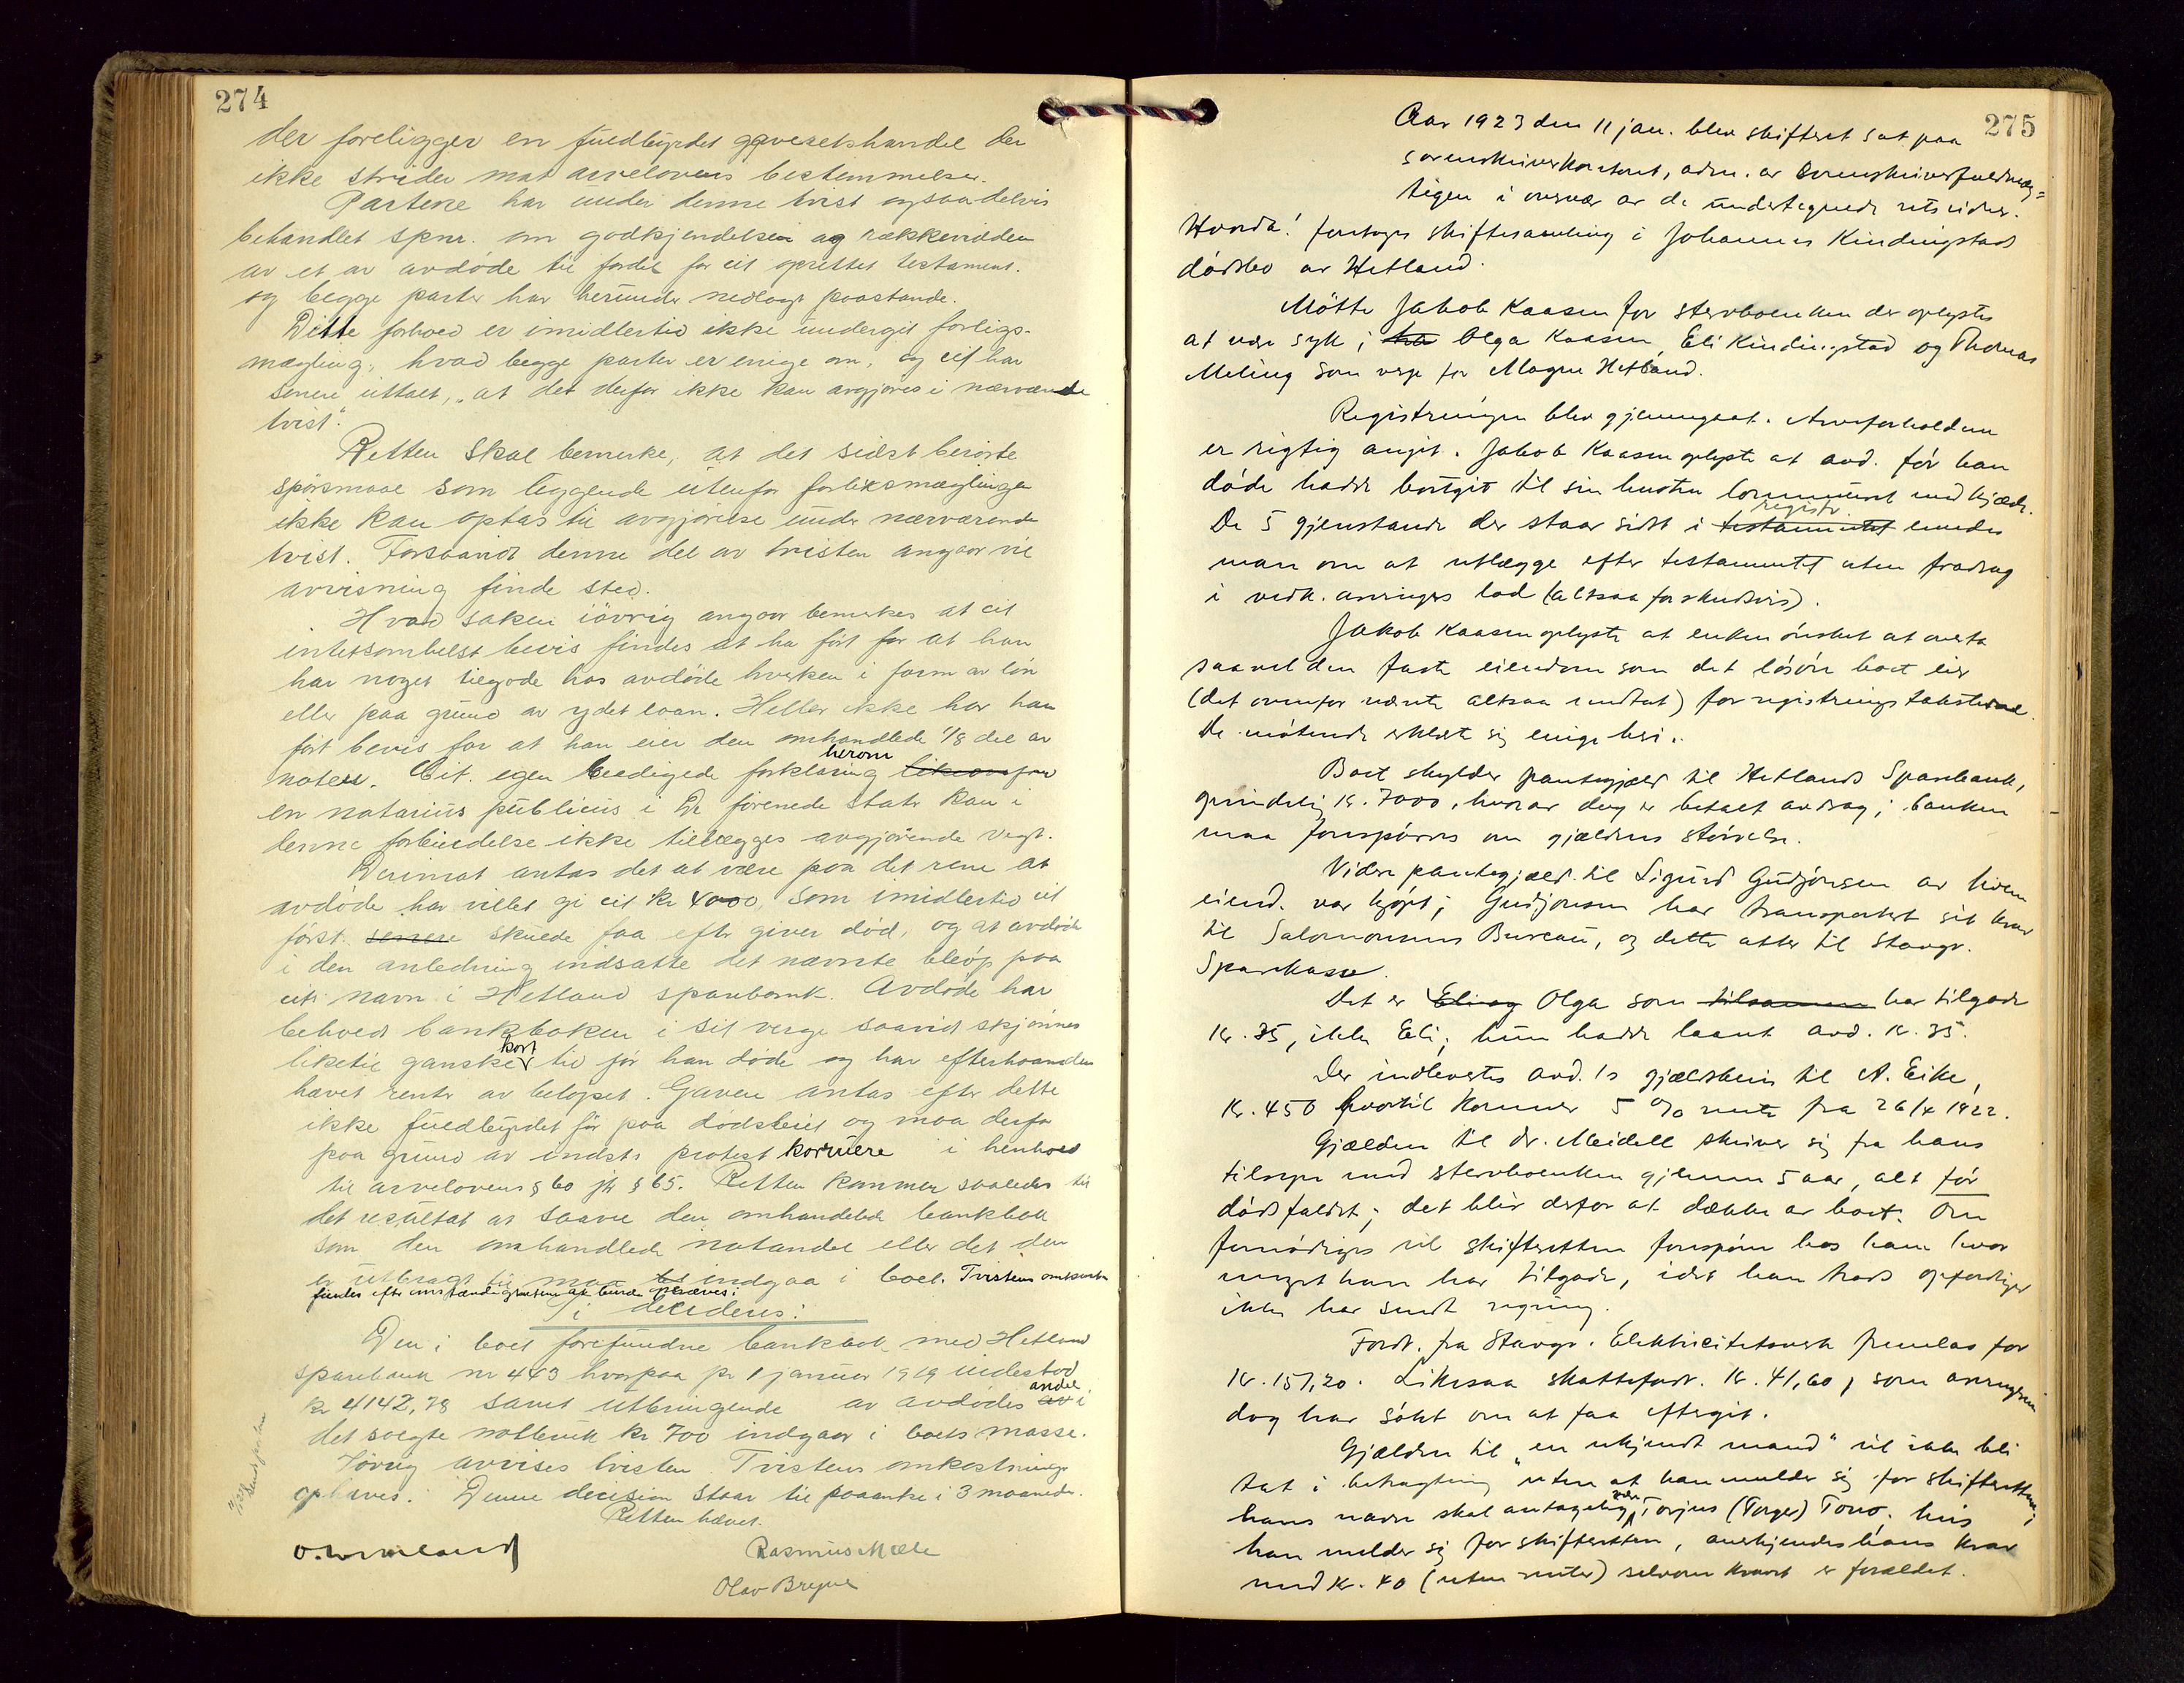 274
der foreligger en fuldbyrdet gaveretshandel der
ikke strider mot arvelovens bestemmelser.
Partene har under denne tvist ogsaa delvis
behandlet spm. om godkjendelsen og rækkevidden
av et av avdøde til fordel for cit oprettet testament.
og begge parter har herunder nedlagt paastande.
Dette forhold er imidlertid ikke undergit forligs-
mægling, hvad begge parter er enige om, og cit har
senere uttalt, "at det derfor ikke kan avgjøres i nærværende
tvist".
Retten skal bemerke, at det sidst berørte
spørsmaal som liggende utenfor forliksmæglingen
ikke kan optas til avgjørelse under nærværende
tvist. Forsaavidt denne del av tvisten angaar vil
avvisning finde sted.
Hvad saken iøvrig angaar bemerkes at cit
intetsomhelst bevis findes at ha ført for at han
har noget tilgode hos avdøde hverken i form av løn
eller paa grund av ydet laan. Heller ikke har han
ført bevis for at han eier den omhandlede 1/8 del av
noten. Cit. egen beedigede forklaring herom for
en notarius publicus i De forenede stater kan i
denne forbindelse ikke tillægges avgjørende vegt.
Derimot antas det at være paa det rene at
avdøde har villet gi cit kr 4000, som imidlertid cit
først senere skulde faa efter giver død, og at avdøde
i den anledning indsatte det nævnte beløp paa
cits navn i Hetland sparebank. Avdøde har
behold bankboken i sit verge saavidt skjønnes
liketil ganske kort tid før han døde og har efterhaanden
hævet renter av beløpet. Gaven antas efter dette
ikke fuldbyrdet før paa dødsleiet og maa derfor
paa grund av indst. protest korruere i henhold
til arvelovens § 60 jfr § 65. Retten kommer saaledes til
det resultat at saavel den omhandlede bankbok
som den omhandlede notandel eller det den
er utbragt til maa indgaa i boet. Tvistens omkostn
findes efter omstændigheterne at burde ophæves.
Ti decideres:
Den i boet forefundne bankbok med Hetland
sparebank nr 443 hvorpaa pr 1 januar 1919 indestod
kr 4142,78 samt utbringende av avdødes andel i
det solgte notbruk kr 700 indgaar i boets masse.
Iøvrig avvises tvisten. Tvistens omkostninger
ophæves. Denne decision staar til paaanke i 3 maaneder.
Retten hævet.
Rasmus Mæle
Olav Bryne
275
Aar 1923 den 11 jan. blev skifteret sat paa
sorenskriverkontoret, adm. av sorenskriverfuldmæg-
tigen i overvær av de undertegnede retsvidner.
Hvorda! foretoges skiftesamling i Johannes Kindingstads
dødsbo av Hetland.
Møtte Jakob Kaasen for stervboenken der oplystes
at være syk; ha Olga Kaasen, Eli Kindingstad og Thomas
Meling som verge for Magne Hetland.
Registreringen blev gjennemgaat. Arveforholdene
er rigtig angit. Jakob Kaasen oplyste at avd. før han
døde hadde bortgit til sin hustru lommeuret med kjæde.
De 5 gjenstande der staar sidst i testamentet registr enedes
man om at utlægge efter testamentet uten fradrag
i vedk. arvingers lod (altsaa forskudsvis).
Jakob Kaasen oplyste at enken ønsket at overta
saavel den faste eiendom som det løsøre boet eier
(det ovenfor nævnte altsaa undtat) for registreringstakstene.
De møtende erklærte sig enige heri.
Boet skylder pantegjæld til Hetlands Sparebank,
oprindelig kr. 7000, hvorav dog er betalt avdrag; banken
maa forespørres om gjældens størrelse.
Videre pantegjæld til Sigurd Gudjonsen av hvem
eiend. var kjøpt; Gudjonsen har transportert sit krav
til Salomonsens Bureau, og dette atter til Stavgr.
Sparekasse.
Det er Eli og Olga som tilsammen har tilgode
kr. 35, ikke Eli; hun hadde laant avd. kr. 35.
Der indlevertes avd.'s gjældsbevis til A. Eike,
kr. 450 hvortil kommer 5 % rente fra 26/4 1922.
Gjælden til dr. Meidell skriver sig fra hans
tilsyn med stervboenken gjennem 5 aar, alt før
dødsfaldet; det blir derfor at dække av boet. Om
fornødiges vil skifteretten forespørre hos ham hvor
meget han har tilgode, idet han trods opfordringer
ikke har sendt regning.
Fordr. fra Stavgr. Elektricitetsverk fremlaa for
kr. 157,20. Likesaa skattefordr. kr. 41,60, som arvingerne
dog har søkt om at faa eftergit.
Gjælden til "en ukjendt mand" vil ikke bli
tat i betragtning uten at han melder sig for skifteretten;
hans navn skal antagelig være Torjus (Torger) Tono. hvis
han melder sig for skifteretten, anerkjendes hans krav
med kr. 40 (uten renter) selvom kravet er forældet.